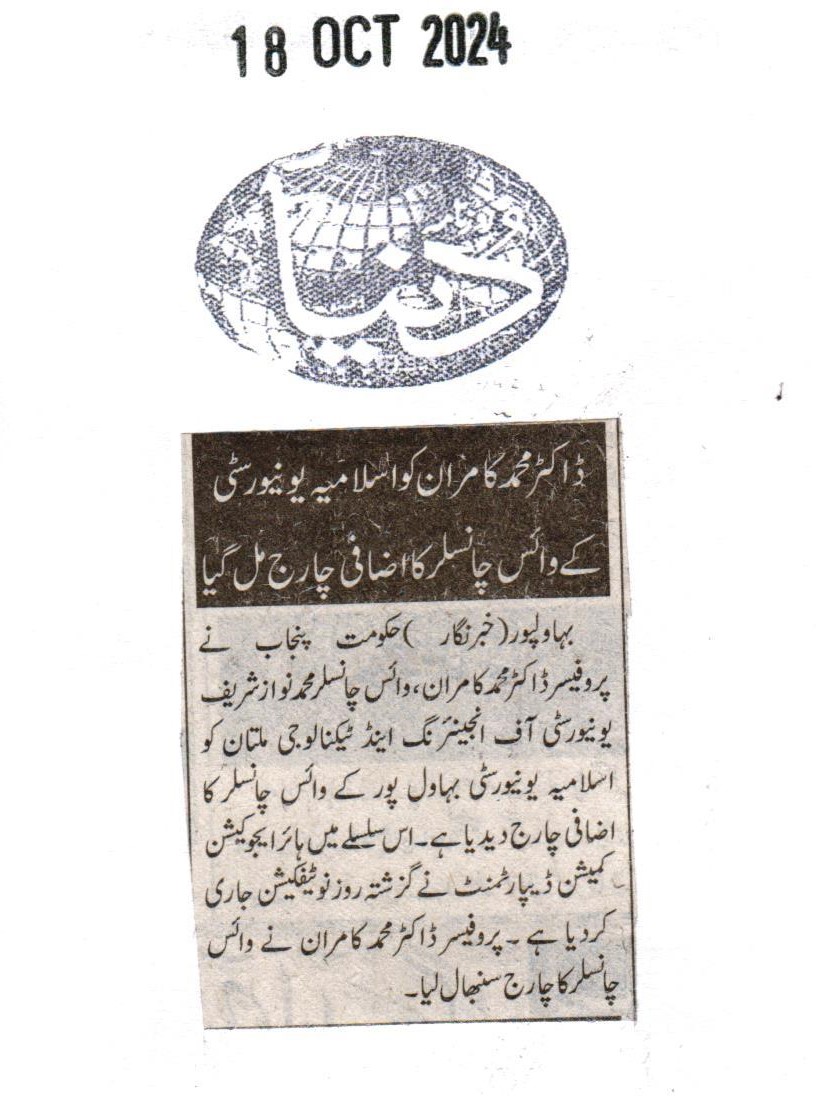 18 OCT 2024
دُنیا
ڈاکٹر محمد کامران کو اسلامیہ یونیورسٹی
کے وائس چانسلر کا اضافی چارج مل گیا
بہاولپور(خبرنگار )حکومت پنجاب نے
پروفیسر ڈاکٹر محمد کامران، وائس چانسلر محمد نواز شریف
یونیورسٹی آف انجینئرنگ اینڈ ٹیکنالوجی ملتان کو
اسلامیہ یونیورسٹی بہاول پور کے وائس چانسلر کا
اضافی چارج دیدیا ہے۔ اس سلسلے میں ہائر ایجوکیشن
کمیشن ڈیپارٹمنٹ نے گزشتہ روز نوٹیفکیشن جاری
کر دیا ہے ۔ پروفیسر ڈاکٹر محمد کامران نے وائس
چانسلر کا چارج سنبھال لیا۔